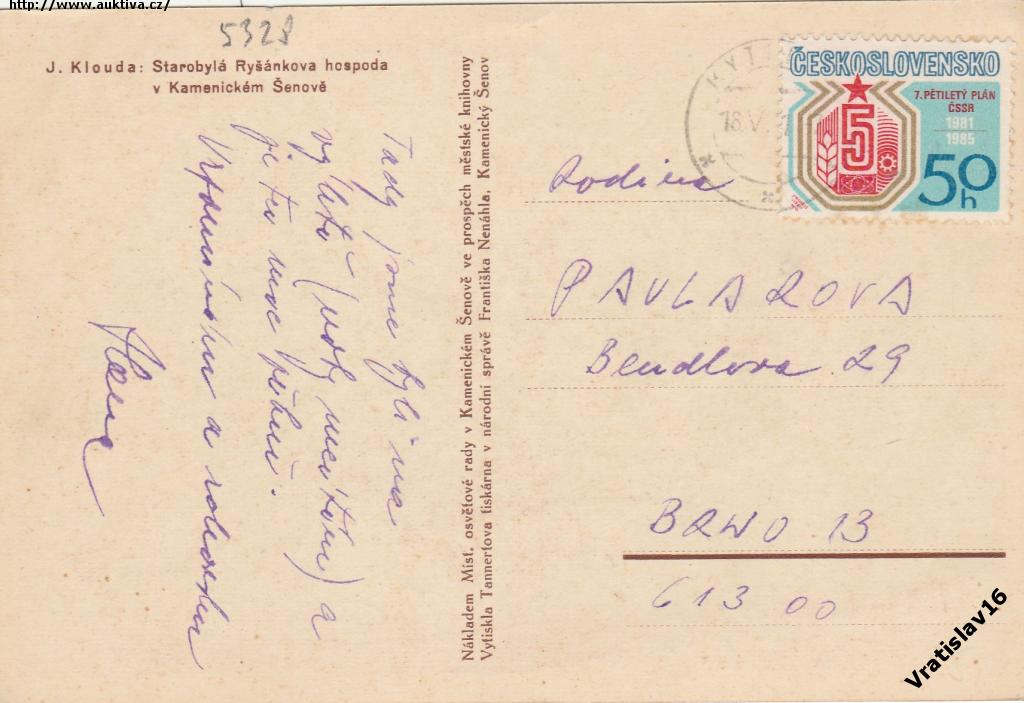 http://www.auktiva.cz/
5328
J. Klouda: Starobylá Ryšánkova hospoda
v Kamenickém Šenově
Tady jsme byli na
výletě (vždy mentolu) a
je to moc pěkné.
a
Nákladem Míst. osvětové rady v Kamenickém Šenově ve prospěch městské knihovny
Vytiskla Tannertova tiskárna v národní správě Františka Nenáhla, Kamenický Šenov
18.V.
ČESKOSLOVENSKO
7. PĚTILETÝ PLÁN
ČSSR
1981
1985
5
50h
Rodina
PAVLAROVA
Bendlova 29
BRNO 13
613 00
Vratislav16